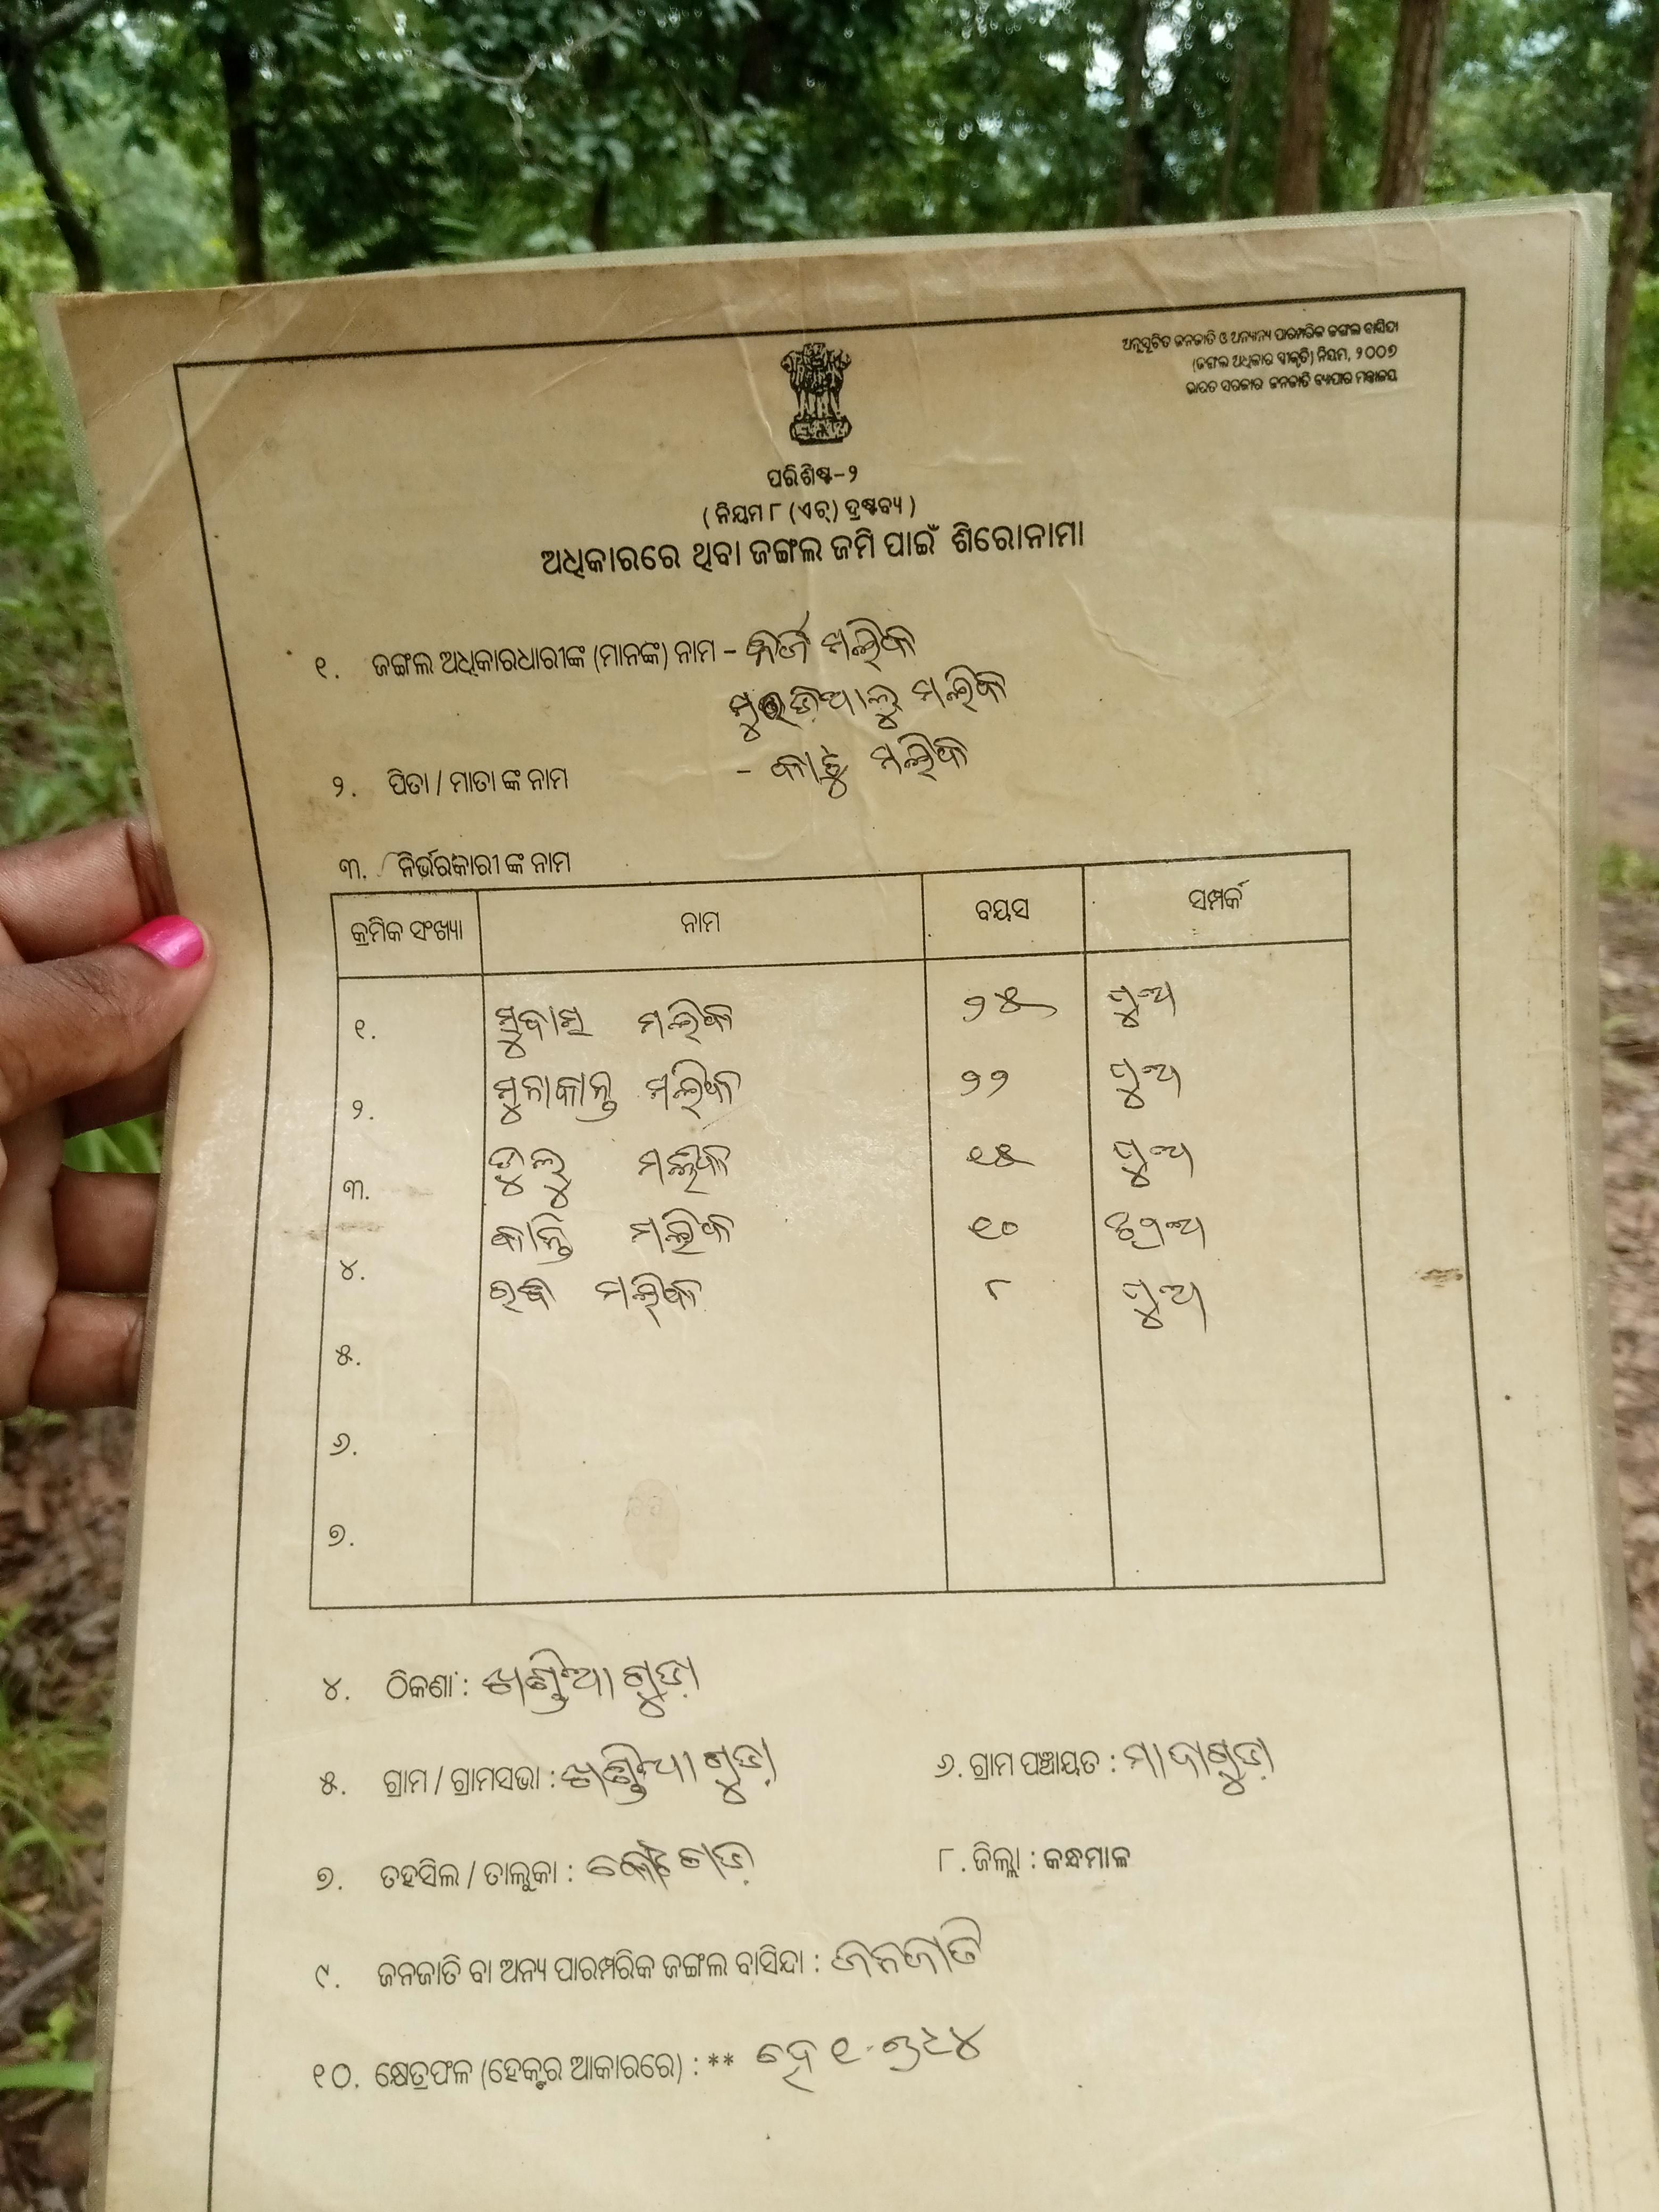 ଅନୁସୂଚିତ ଜନଜାତି ଓ ଅନ୍ୟାନ୍ୟ ପାରମ୍ପରିକ ଜଙ୍ଗଲ ବାସିନ୍ଦା
(ଜଙ୍ଗଲ ଅଧିକାର ସ୍ୱୀକୃତି) ନିୟମ, ୨୦୦୭
ଭାରତ ସରକାର ଜନଜାତି ବ୍ୟାପାର ମନ୍ତ୍ରାଳୟ
ପରିଶିଷ୍ଟ-୨
( ନିୟମ ୮ (ଏଚ୍) ଦ୍ରଷ୍ଟବ୍ୟ )
ଅଧିକାରରେ ଥିବା ଜଙ୍ଗଲ ଜମି ପାଇଁ ଶିରୋନାମା
୧. ଜଙ୍ଗଲ ଅଧିକାରଧାରୀଙ୍କ (ମାନଙ୍କ) ନାମ - ମଲ୍ଲିକ
ମଲ୍ଲିକ
୨. ପିତା / ମାତା ଙ୍କ ନାମ - ମଲ୍ଲିକ
୩. ନିର୍ଭରକାରୀ ଙ୍କ ନାମ
କ୍ରମିକ ସଂଖ୍ୟା ନାମ ବୟସ ସମ୍ପର୍କ
୧. ସୁଦାମ ମଲ୍ଲିକ ୨୫ ପୁଅ
୨. ମଲ୍ଲିକ ୨୨ ପୁଅ
୩. ଟୁଲୁ ମଲ୍ଲିକ ୧୫ ପୁଅ
୪. କାନ୍ତି ମଲ୍ଲିକ ୧୦ ଝିଅ
ମଲ୍ଲିକ ୮ ପୁଅ
୫.
୬.
୭.
୪. ଠିକଣା : ଖଣ୍ଡିଆ ଗୁଡ଼ା
୫. ଗ୍ରାମ / ଗ୍ରାମସଭା : ଖଣ୍ଡିଆ ଗୁଡ଼ା ୬. ଗ୍ରାମ ପଞ୍ଚାୟତ :
୭. ତହସିଲ / ତାଲୁକା : କୋଟଗଡ଼ ୮. ଜିଲ୍ଲା : କନ୍ଧମାଳ
୯. ଜନଜାତି ବା ଅନ୍ୟ ପାରମ୍ପରିକ ଜଙ୍ଗଲ ବାସିନ୍ଦା : ଜନଜାତି
୧୦. କ୍ଷେତ୍ରଫଳ (ହେକ୍ଟର ଆକାରରେ) : ** ହେ